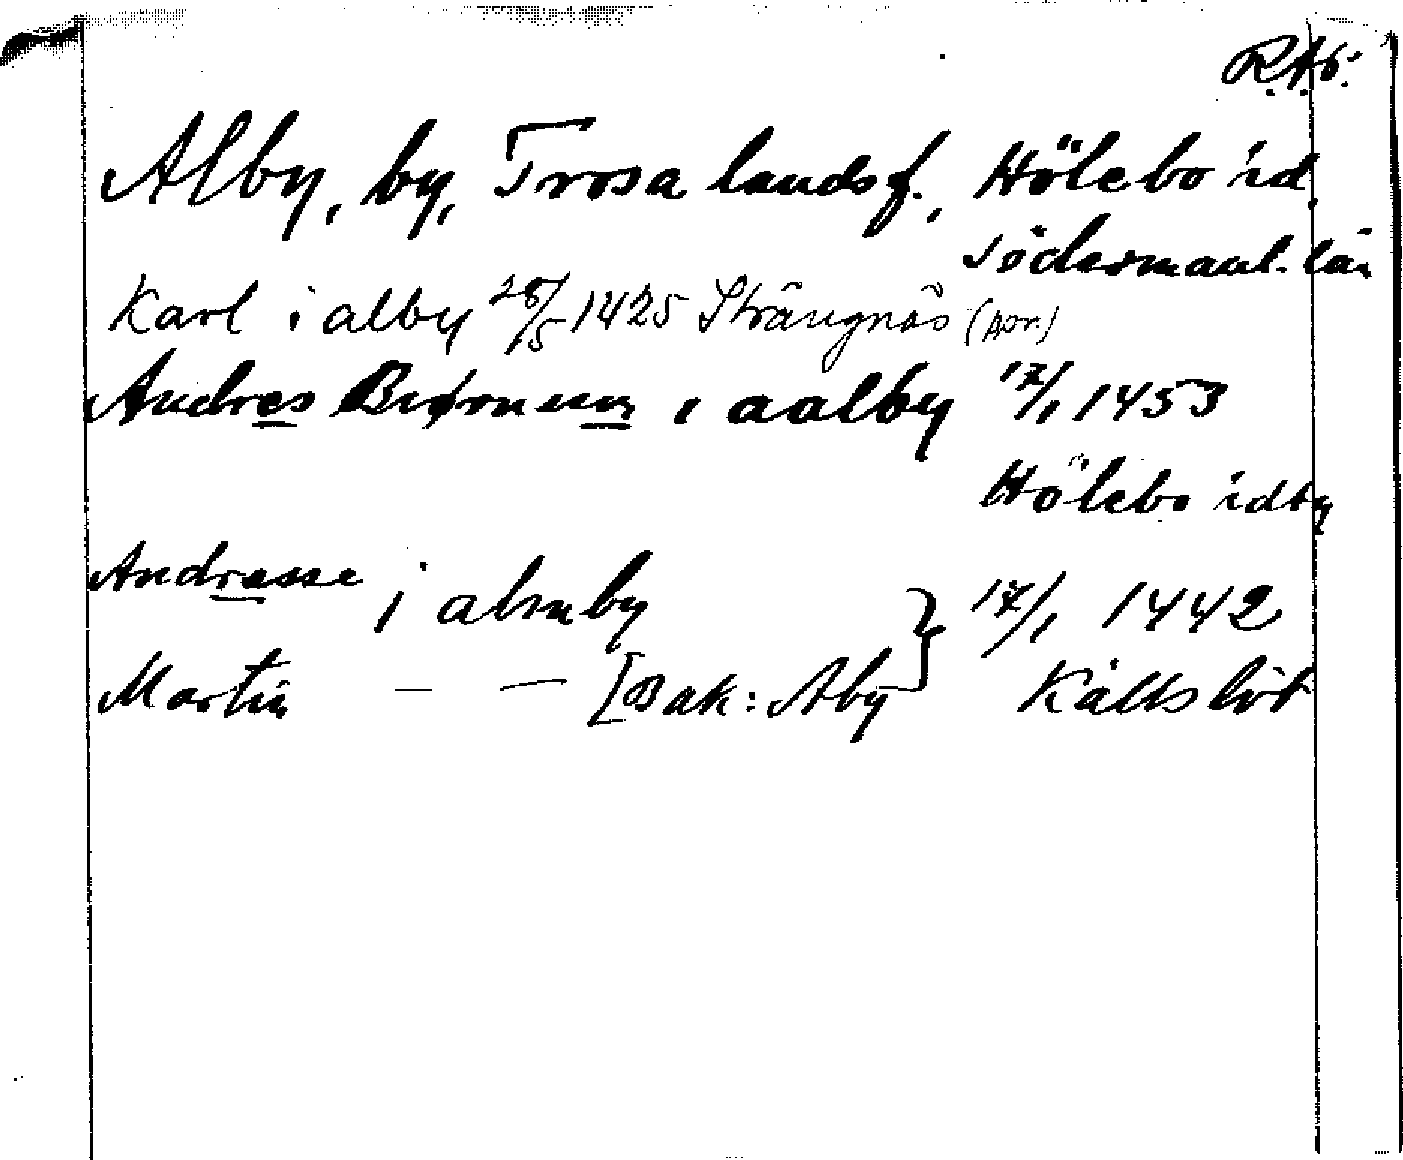 R.A.6.
Alby, by, Trosa landsf., Hölebo hd,
Södermanl. län
Karl i alby 28/5 1425 Strängnäs (Apr.)
Andres Biørnnsn i aalby 17/1 1453
Hölebo hdtg
Andrasse i almby } 17/1 1442
Martin — — [Bak: Aby